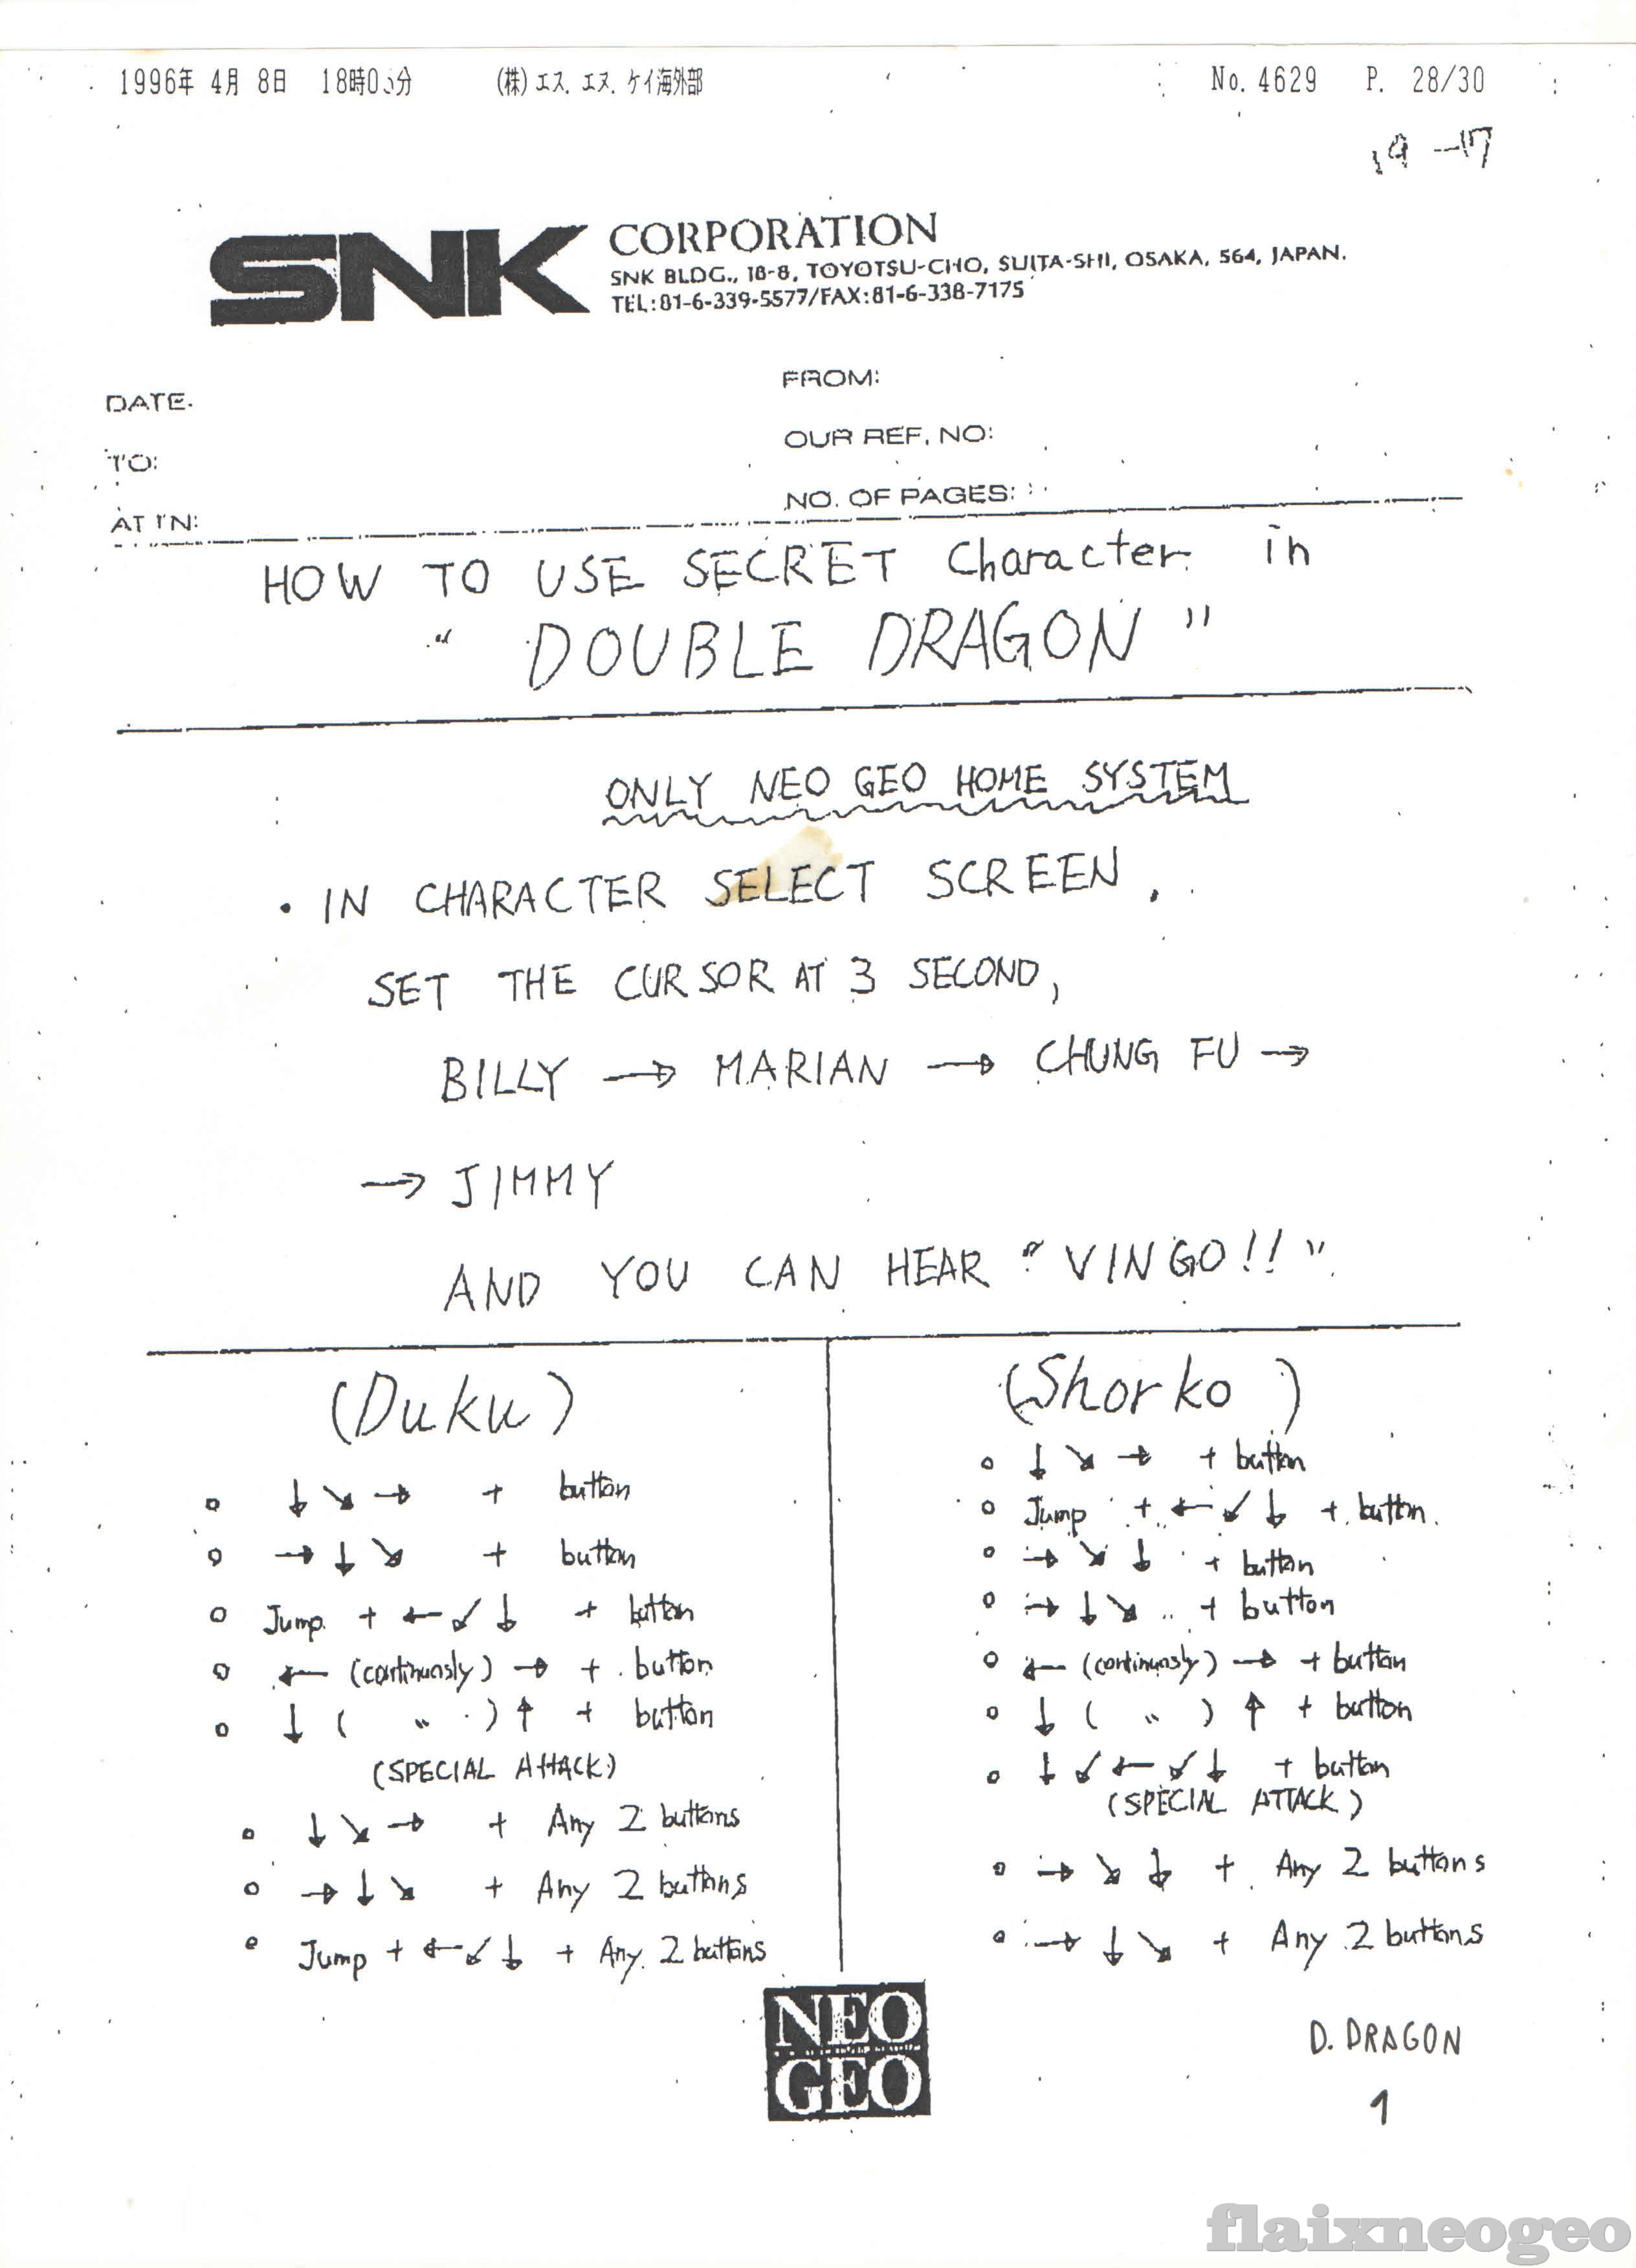 1996年 4月 8日 18時0 分 (株)エス. エヌ. ケイ海外部 No. 4629 P. 28/30
19-17
SNK CORPORATION
SNK BLDG., 18-8, TOYOTSU-CHO, SUITA-SHI, OSAKA, 564, JAPAN.
TEL:81-6-339-5577/FAX:81-6-338-7175
FROM:
DATE.
OUR REF. NO:
TO:
NO. OF PAGES:
ATTN:
HOW TO USE SECRET Character in
"DOUBLE DRAGON"
ONLY NEO GEO HOME SYSTEM
• IN CHARACTER SELECT SCREEN,
SET THE CURSOR AT 3 SECOND,
BILLY → MARIAN → CHUNG FU →
→ JIMMY
AND YOU CAN HEAR "VINGO!!"
(Duku)
o ↓ ↘ → + button
o → ↓ ↘ + button
o Jump + ← ↙ ↓ + button
o ← (continuosly) → + button
o ↓ ( 〃 ) ↑ + button
(SPECIAL ATTACK)
o ↓ ↘ → + Any 2 buttons
o → ↓ ↘ + Any 2 buttons
o Jump + ← ↙ ↓ + Any 2 buttons
(Shorko)
o ↓ ↘ → + button
o Jump + ← ↙ ↓ + button.
o → ↘ ↓ + button
o → ↓ ↘ + button
o ← (continuosly) → + button
o ↓ ( 〃 ) ↑ + button
o ↓ ↙ ← ↙ ↓ + button
(SPECIAL ATTACK)
o → ↘ ↓ + Any 2 buttons
o → ↓ ↘ + Any 2 buttons
NEO
GEO
D. DRAGON
1
flaixneogeo